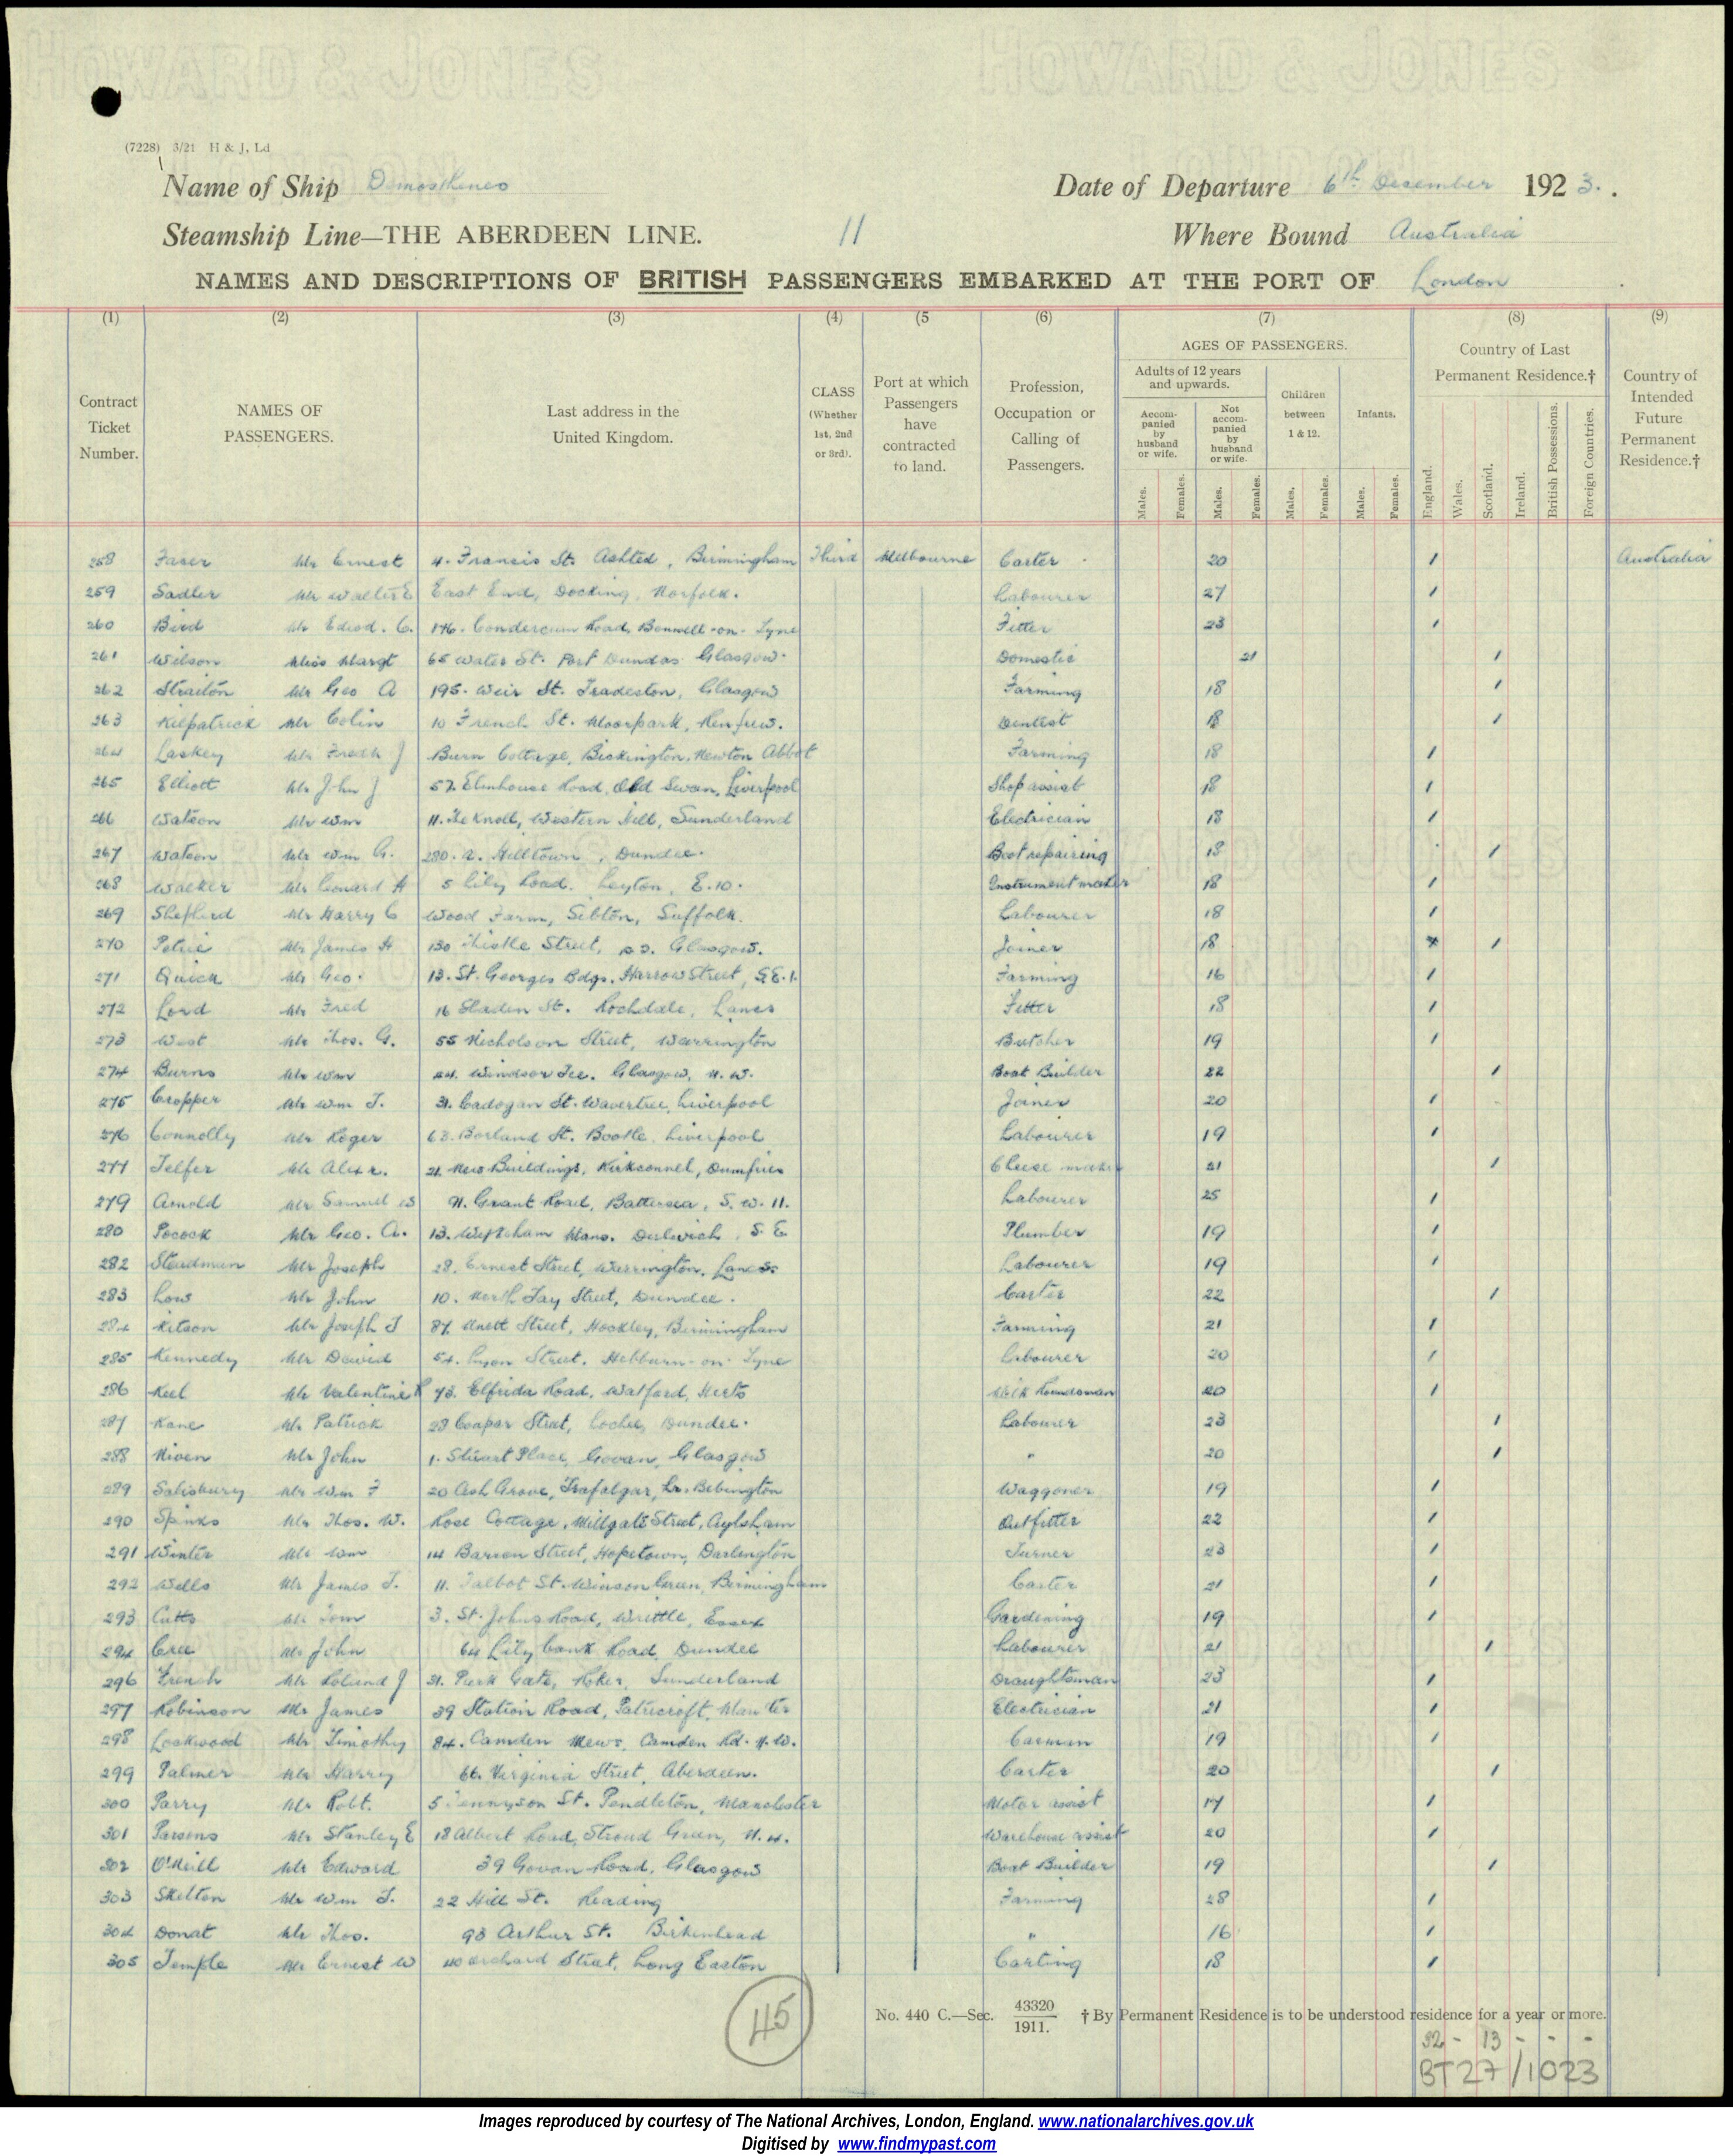 HOWARD & JONES HOWARD & JONES
(7228) 3/21 H & J, Ld
Name of Ship Demosthenes Date of Departure 6th December 1923.
Steamship Line—THE ABERDEEN LINE. 11 Where Bound Australia
NAMES AND DESCRIPTIONS OF BRITISH PASSENGERS EMBARKED AT THE PORT OF London
(1) (2) (3) (4) (5 (6) (7) (8) (9)
Contract Ticket Number.
NAMES OF PASSENGERS.
Last address in the United Kingdom.
CLASS (Whether 1st, 2nd or 3rd).
Port at which Passengers have contracted to land.
Profession, Occupation or Calling of Passengers.
AGES OF PASSENGERS.
Adults of 12 years and upwards.
Accompanied by husband or wife.
Not accompanied by husband or wife.
Children between 1 & 12.
Infants.
Males. Females. Males. Females. Males. Females. Males. Females.
Country of Last Permanent Residence.†
England. Wales. Scotland. Ireland. British Possessions. Foreign Countries.
Country of Intended Future Permanent Residence.†
258 Mr Ernest 4. Francis St. Ashted, Birmingham Third Melbourne Carter 20 1 Australia
259 Sadler Mr Walter E East End, Docking, Norfolk. Labourer 27 1
260 Bird Mr Edwd. C. 176. Condercum Road, Benwell-on-Tyne Fitter 23 1
261 Wilson Miss Margt 65 Water St. Port Dundas Glasgow. Domestic 21 1
262 Straiton Mr Geo A 195. Weir St. Tradeston, Glasgow Farming 18 1
263 Kilpatrick Mr Colin 10 French St. Moorpark, Renfrew. Dentist 18 1
264 Laskey Mr Fredk J Burn Cottage, Bickington, Newton Abbot Farming 18 1
265 Elliott Mr John J 57. Elmhouse Road, Old Swan, Liverpool Shop assist 18 1
266 Watson Mr Wm 11. The Knoll, Western Hill, Sunderland Electrician 18 1
267 Watson Mr Wm G. 280. a. Hilltown, Dundee. Boot repairing 18 1
268 Walker Mr Leonard A 5 Lily Road. Leyton, E.10. Instrument maker 18 1
269 Shepherd Mr Harry C Wood Farm, Sibton, Suffolk. Labourer 18 1
270 Petrie Mr James H 130 Thistle Street, Glasgow. Joiner 18 1
271 Quick Mr Geo. 13. St. Georges Bdgs. Harrow Street, S.E.1. Farming 16 1
272 Lord Mr Fred 16 Sladen St. Rochdale, Lancs Fitter 18 1
273 West Mr Thos. G. 55 Nicholson Street, Warrington Butcher 19 1
274 Burns Mr Wm 24. Windsor Tce. Glasgow, N.W. Boat Builder 22 1
275 Cropper Mr Wm T. 31. Cadogan St. Wavertree, Liverpool Joiner 20 1
276 Connolly Mr Roger 63. Borland St. Bootle, Liverpool Labourer 19 1
277 Telfer Mr Alexr. 21. New Buildings, Kirkconnel, Dumfries Cheese maker 21 1
279 Arnold Mr Samuel 91. Grant Road, Battersea, S.W.11. Labourer 25 1
280 Pocock Mr Geo. A. 13. Mans. Dulwich, S.E Plumber 19 1
282 Steadman Mr Joseph 28. Ernest Street, Warrington, Lancs. Labourer 19 1
283 Low Mr John 10. North Tay Street, Dundee. Carter 22 1
284 Kitson Mr Joseph T 87. Unett Street, Hockley, Birmingham Farming 21 1
285 Kennedy Mr David 54. Lyon Street. Hebburn-on-Tyne Labourer 20 1
286 Keel Mr Valentine R 73. Elfrida Road, Watford, Herts Milk Roundsman 20 1
287 Kane Mr Patrick 23 Coupar Street, Lochee, Dundee. Labourer 23 1
288 Niven Mr John 1. Stuart Place, Govan, Glasgow " 20 1
289 Salisbury Mr Wm F 20 Ash Grove, Trafalgar, Lr. Bebington Waggoner 19 1
290 Spinks Mr Thos. W. Rose Cottage, Millgate Street, Aylsham Outfitter 22 1
291 Winter Mr Wm 14 Barron Street, Hopetown, Darlington Turner 23 1
292 Wells Mr James T. 11. Talbot St. Winson Green, Birmingham Carter 21 1
293 Cutts Mr Tom 3. St. Johns Road, Writtle, Essex Gardening 19 1
294 Cree Mr John 64 Lilybank Road, Dundee Labourer 21 1
296 French Mr Roland J 31. Park Gate, Roker, Sunderland Draughtsman 23 1
297 Robinson Mr James 39 Station Road, Patricroft, Man'ter Electrician 21 1
298 Lockwood Mr Timothy 84. Camden Mews, Camden Rd. N.W. Carman 19 1
299 Palmer Mr Harry 66. Virginia Street, Aberdeen. Carter 20 1
300 Parry Mr Robt. 5 Tennyson St. Pendleton, Manchester Motor assist 17 1
301 Parsons Mr Stanley E 18 Albert Road, Stroud Green, N.4. Warehouse assist 20 1
302 O'Neill Mr Edward 39 Govan Road, Glasgow Boat Builder 19 1
303 Skelton Mr Wm T. 22 Hill St. Reading Farming 28 1
304 Donat Mr Thos. 93 Arthur St. Birkenhead " 16 1
305 Temple Mr Ernest W 40 Orchard Street, Long Easton Carting 18 1
45
No. 440 C.—Sec. 43320/1911. † By Permanent Residence is to be understood residence for a year or more.
32 - 13 - - -
BT27/1023
Images reproduced by courtesy of The National Archives, London, England. www.nationalarchives.gov.uk
Digitised by www.findmypast.com